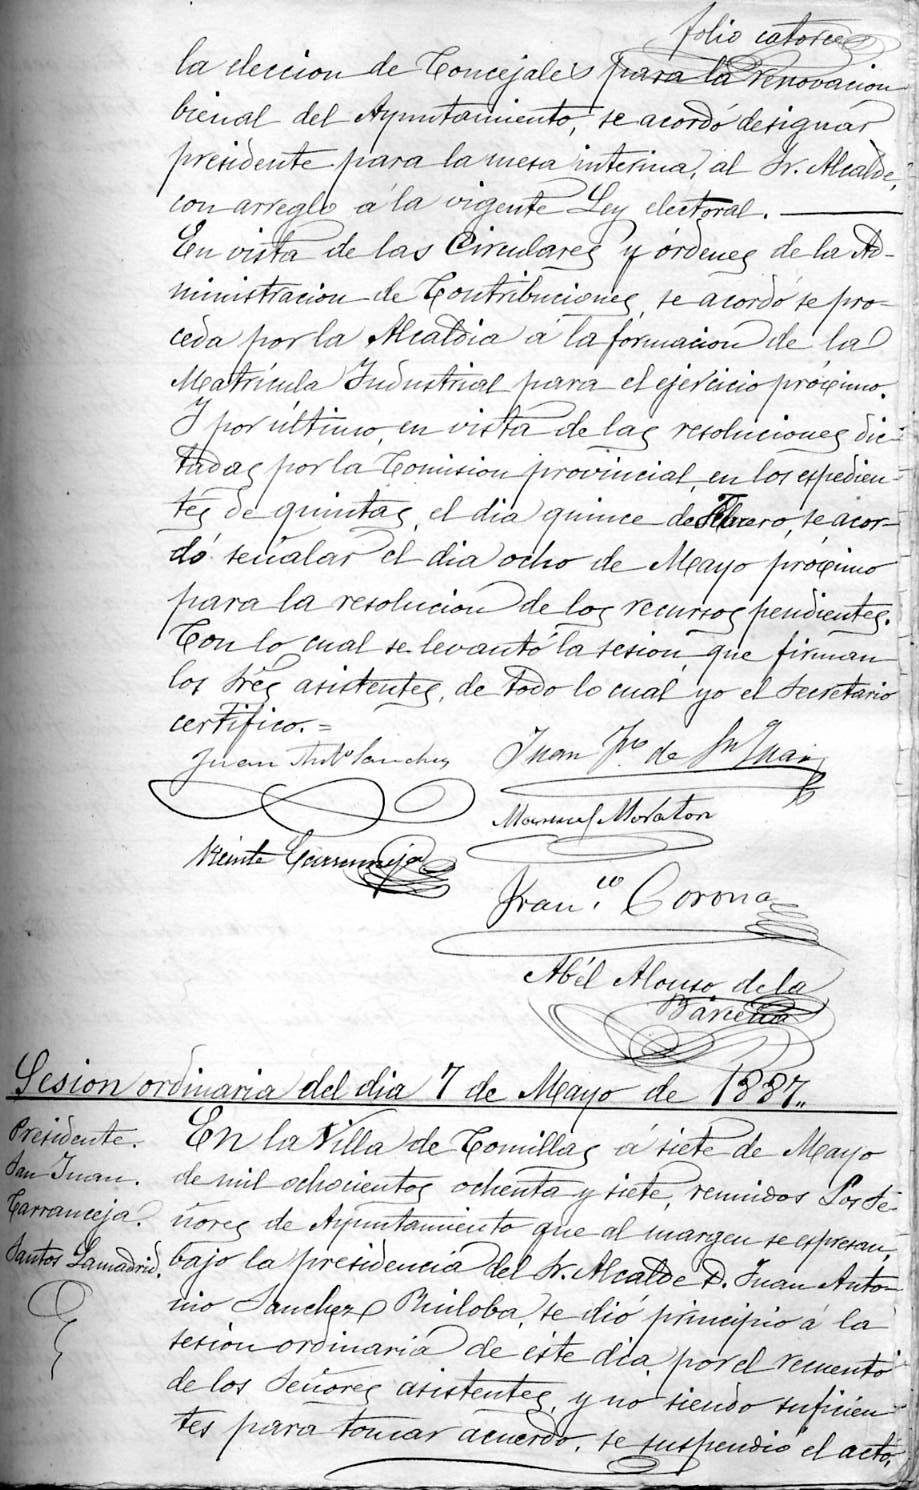 folio catorce
la eleccion de Concejales para la renovacion
bienal del Ayuntamiento, se acordó designar
presidente para la mesa interina, al Sr. Alcalde,
con arreglo á la vigente Ley electoral.
En vista de las Circulares y órdenes de la Ad-
ministracion de Contribuciones, se acordó se pro-
ceda por la Alcaldia á la formacion de la
Matrícula Industrial para el ejercicio próximo.
Y por último, en vista de las resoluciones dic-
tadas por la Comision provincial, en los espedien-
tes de quintas, el dia quince de Febrero, se acor-
dó señalar el dia ocho de Mayo próximo
para la resolucion de los recursos pendientes.
Con lo cual se levantó la sesion, que firman
los Sres asistentes, de todo lo cual yo el Secretario
certifico.=
Juan Anto Sanchez
Juan Fco de Sn Juan
Manuel Moraton
Vicente Carranceja
Franco. Corona
Abél Alonso de la
Bárcena
Sesion ordinaria del dia 7 de Mayo de 1887.,
Presidente.
San Juan.
Carranceja.
Santos Lamadrid.
En la Villa de Comillas á siete de Mayo
de mil ochocientos ochenta y siete, reunidos los Se-
ñores de Ayuntamiento que al margen se espresan,
bajo la presidencia del Sr. Alcalde D. Juan Anto-
nio Sanchez Ruiloba, se dió principio á la
sesion ordinaria de éste dia, por el recuento
de los Señores asistentes, y no siendo suficien-
tes para tomar acuerdo, se suspendió el acto,